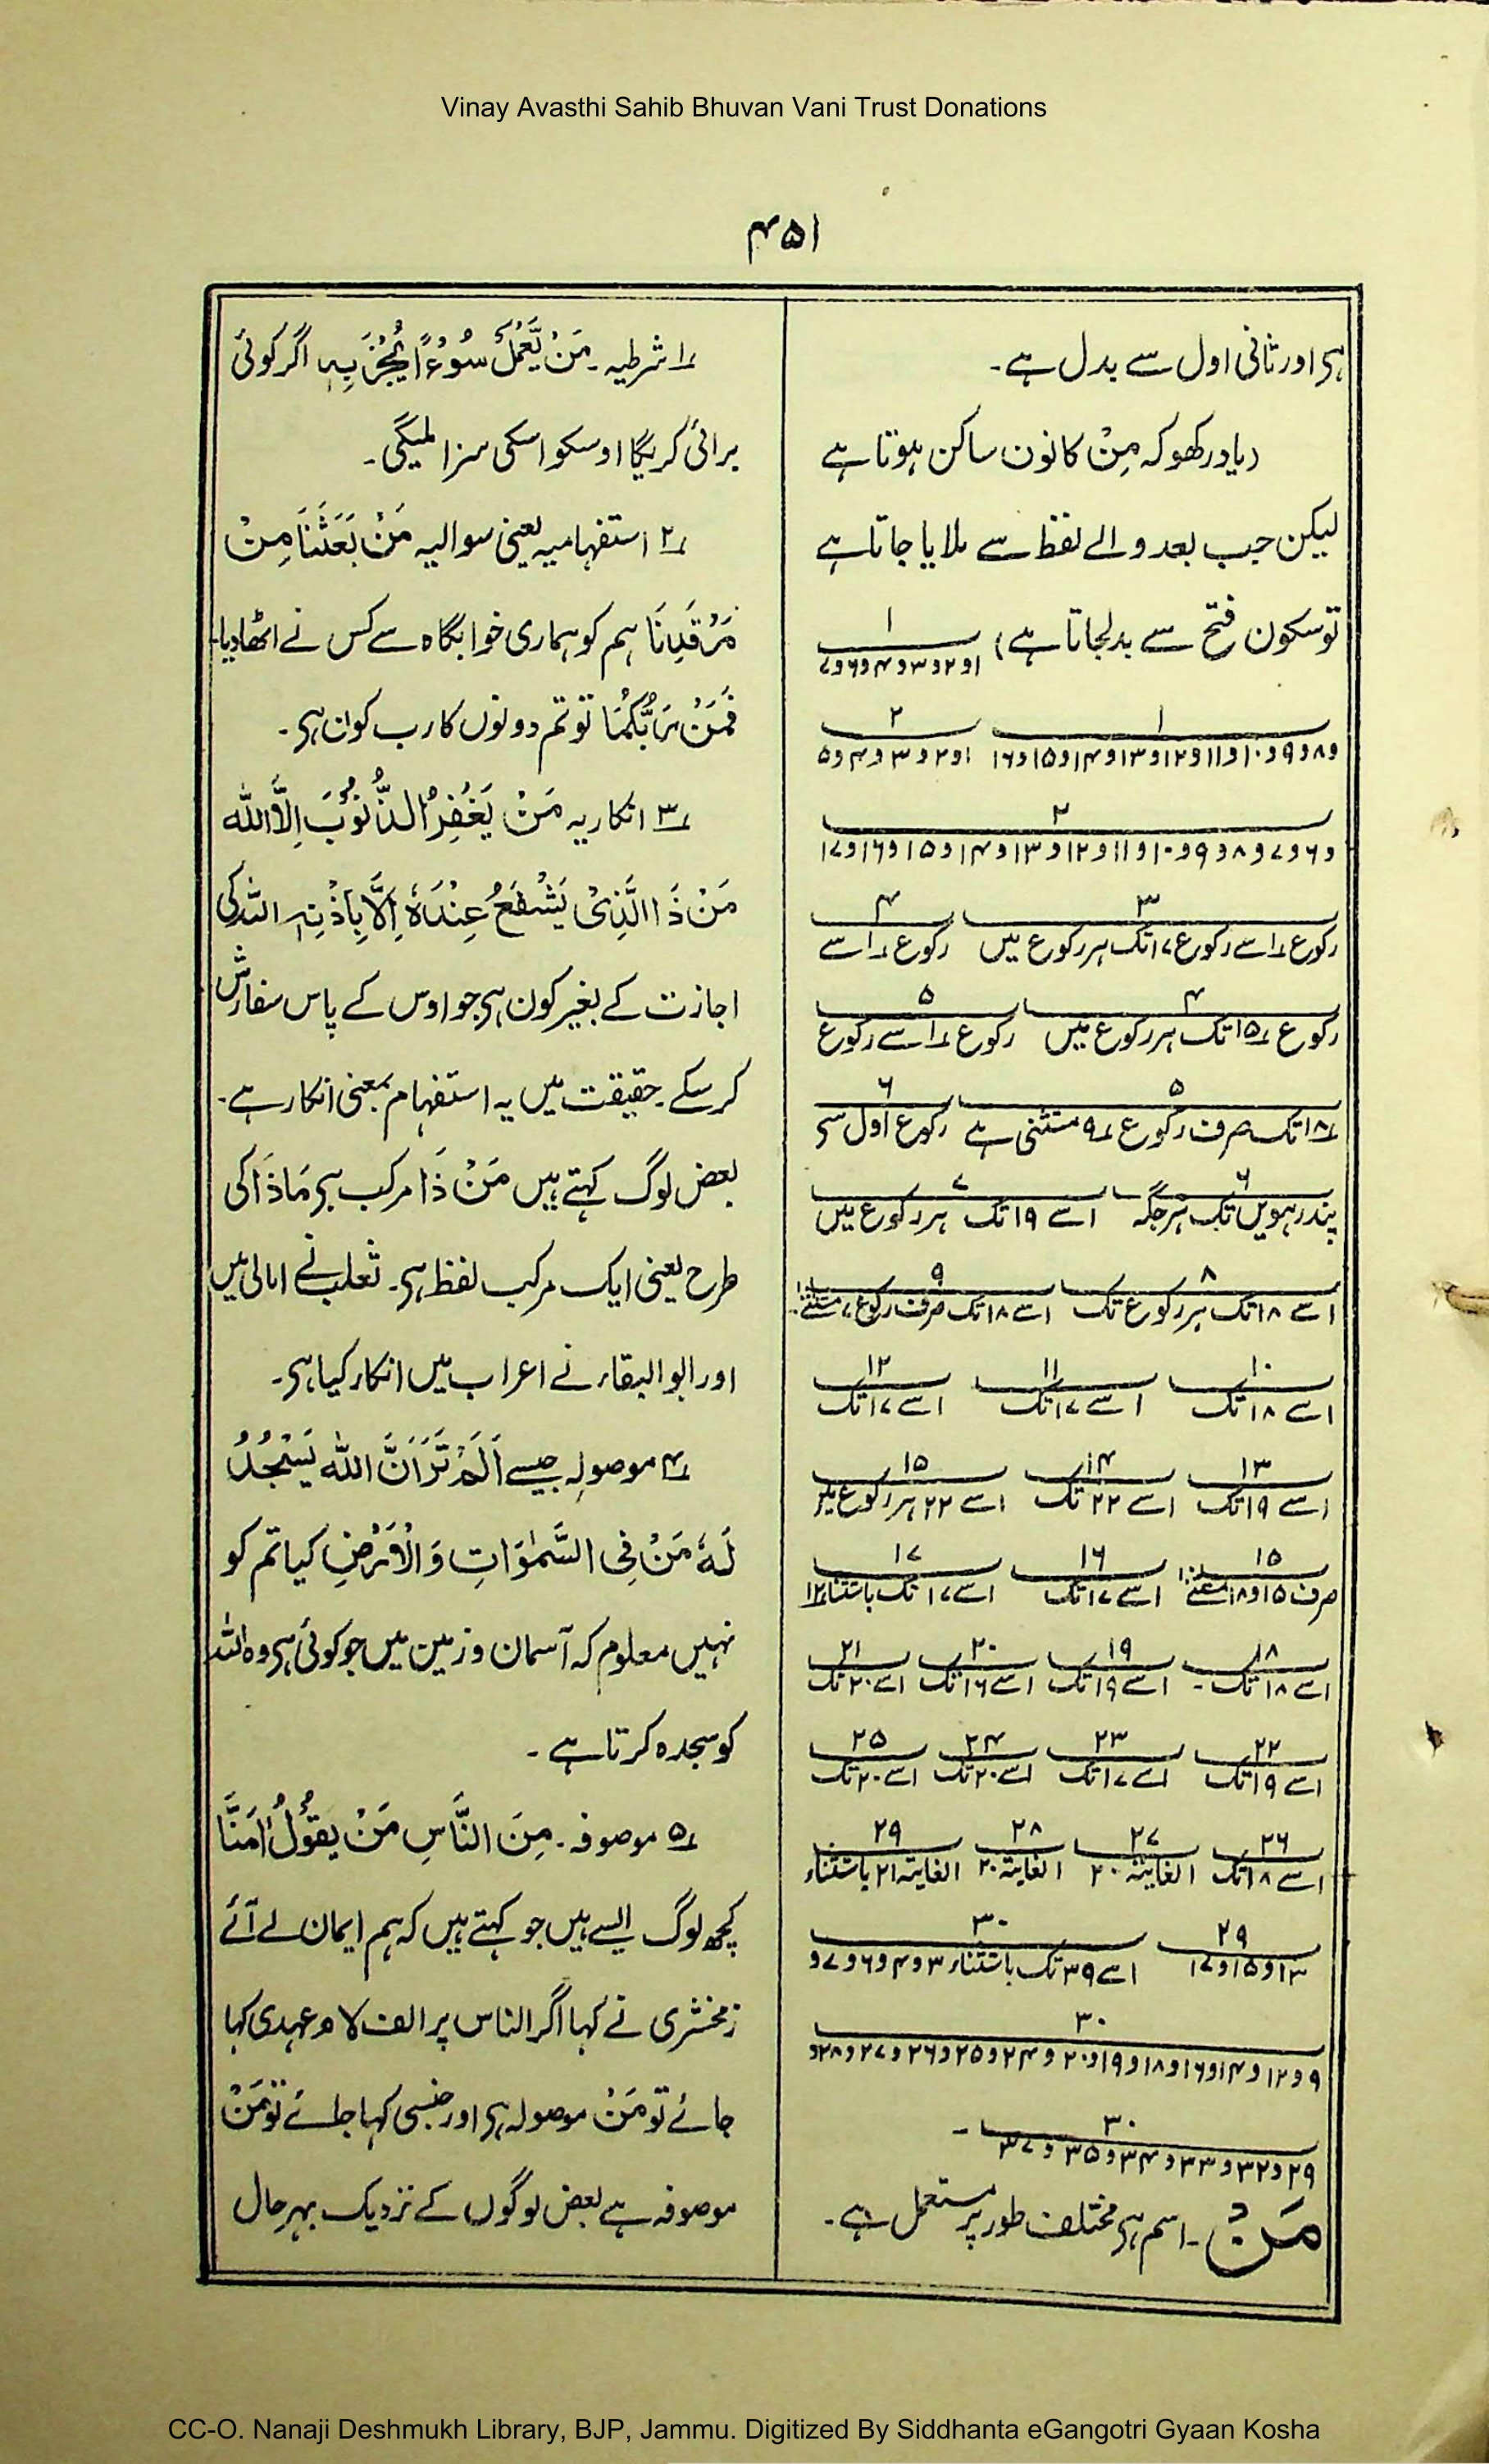 Vinay Avasthi Sahib Bhuvan Vani Trust Donations
۴۵۱
ہی اور ثانی اول سے بدل ہے۔
(یاد رکھو کہ مِنْ کا نون ساکن ہوتا ہے
لیکن جب بعد والے لفظ سے ملایا جاتا ہے
تو سکون فتح سے بدلجاتا ہے) ۱
۱و۲و۳و۴و۶و۷
۱ ۲
و۸و۹و۱۰و۱۱و۱۲و۱۳و۱۴و۱۵و۱۶ ۱و۲و۳و۴و۵
۲
و۶و۷و۸و۹و۱۰و۱۱و۱۲و۱۳و۱۴و۱۵و۱۶و۱۷
۳ ۴
رکوع ۱ سے رکوع ۱۷ تک ہر رکوع میں رکوع ۱ سے
۴ ۵
رکوع ۱۵ تک ہر رکوع میں رکوع ۱ سے رکوع
۵ ۶
۱۸ تک صرف رکوع ۹ مستثنی ہے رکوع اول سی
۶ ۷
پندرہویں تک ہر جگہ ۱ سے ۱۹ تک ہر رکوع میں
۸ ۹
۱ سے ۱۸ تک ہر رکوع تک ۱ سے ۱۸ تک صرف رکوع ۷ مستثنیٰ
۱۰ ۱۱ ۱۲
۱ سے ۱۸ تک ۱ سے ۱۷ تک ۱ سے ۱۷ تک
۱۳ ۱۴ ۱۵
۱ سے ۱۹ تک ۱ سے ۲۲ تک ۱ سے ۲۲ ہر رکوع میں
۱۵ ۱۶ ۱۷
صرف ۱۵و۱۸ ۱ سے ۱۷ تک ۱ سے ۱۷ تک باستثناء ۱۲
۱۸ ۱۹ ۲۰ ۲۱
۱ سے ۱۸ تک۔ ۱ سے ۱۹ تک ۱ سے ۱۶ تک ۱ سے ۲۰ تک
۲۲ ۲۳ ۲۴ ۲۵
۱ سے ۱۹ تک ۱ سے ۱۷ تک ۱ سے ۲۰ تک ۱ سے ۲۰ تک
۲۶ ۲۷ ۲۸ ۲۹
۱ سے ۱۸ تک ۱ لغایتہ ۲۰ ۱ لغایتہ ۲۰ ۱ لغایتہ ۲۱ باستثناء
۲۹ ۳۰
۱۳و۱۵و۱۷ ۱ سے ۳۹ تک باستثناء ۳و۴و۶و۷و
۳۰
۹و۱۲و۱۴و۱۶و۱۸و۱۹و۲۰و۲۴و۲۵و۲۶و۲۷و۲۸و
۳۰
۲۹و۳۲و۳۳و۳۴و۳۵و۳۷ ۔
مَنْ ۔ اسم ہی مختلف طور پر مستعمل ہے۔
۱ شرطیہ۔ مَنْ یَّعْمَلْ سُوْءًا یُّجْزَ بِہٖ اگر کوئی
برائی کریگا اوسکو اسکی سزا ملیگی۔
۲ استفہامیہ یعنی سوالیہ مَنْ بَعَثَنَا مِنْ
مَرْقَدِنَا ہم کو ہماری خوابگاہ سے کس نے اٹھا دیا۔
فَمَنْ رَبُّکُمَا تو تم دونوں کا رب کون ہی۔
۳ انکاریہ مَنْ یَغْفِرُ الذُّنُوْبَ اِلَّا اللہ
مَنْ ذَا الَّذِیْ یَشْفَعُ عِنْدَہٗ اِلَّا بِاِذْنِہٖ اللہ کی
اجازت کے بغیر کون ہی جو اوس کے پاس سفارش
کر سکے۔ حقیقت میں یہ استفہام بمعنی انکار ہے۔
بعض لوگ کہتے ہیں مَنْ ذَا مرکب ہی مَاذَا کی
طرح یعنی ایک مرکب لفظ ہی۔ ثعلب نے امالی میں
اور ابو البقاء نے اعراب میں انکار کیا ہی۔
۴ موصولہ جیسے اَلَمْ تَرَ اَنَّ اللہ یَسْجُدُ
لَہٗ مَنْ فِی السَّمٰوَاتِ وَالْاَرْضِ کیا تم کو
نہیں معلوم کہ آسمان و زمین میں جو کوئی ہی وہ اللہ
کو سجدہ کرتا ہے۔
۵ موصوفہ۔ مِنَ النَّاسِ مَنْ یَقُوْلُ اٰمَنَّا
کچھ لوگ ایسے ہیں جو کہتے ہیں کہ ہم ایمان لے آئے
زمخشری نے کہا اگر الناس پر الف لام عہدی کہا
جائے تو مَنْ موصولہ ہی اور جنسی کہا جائے تو مَنْ
موصوفہ ہے بعض لوگوں کے نزدیک بہر حال
CC-O. Nanaji Deshmukh Library, BJP, Jammu. Digitized By Siddhanta eGangotri Gyaan Kosha